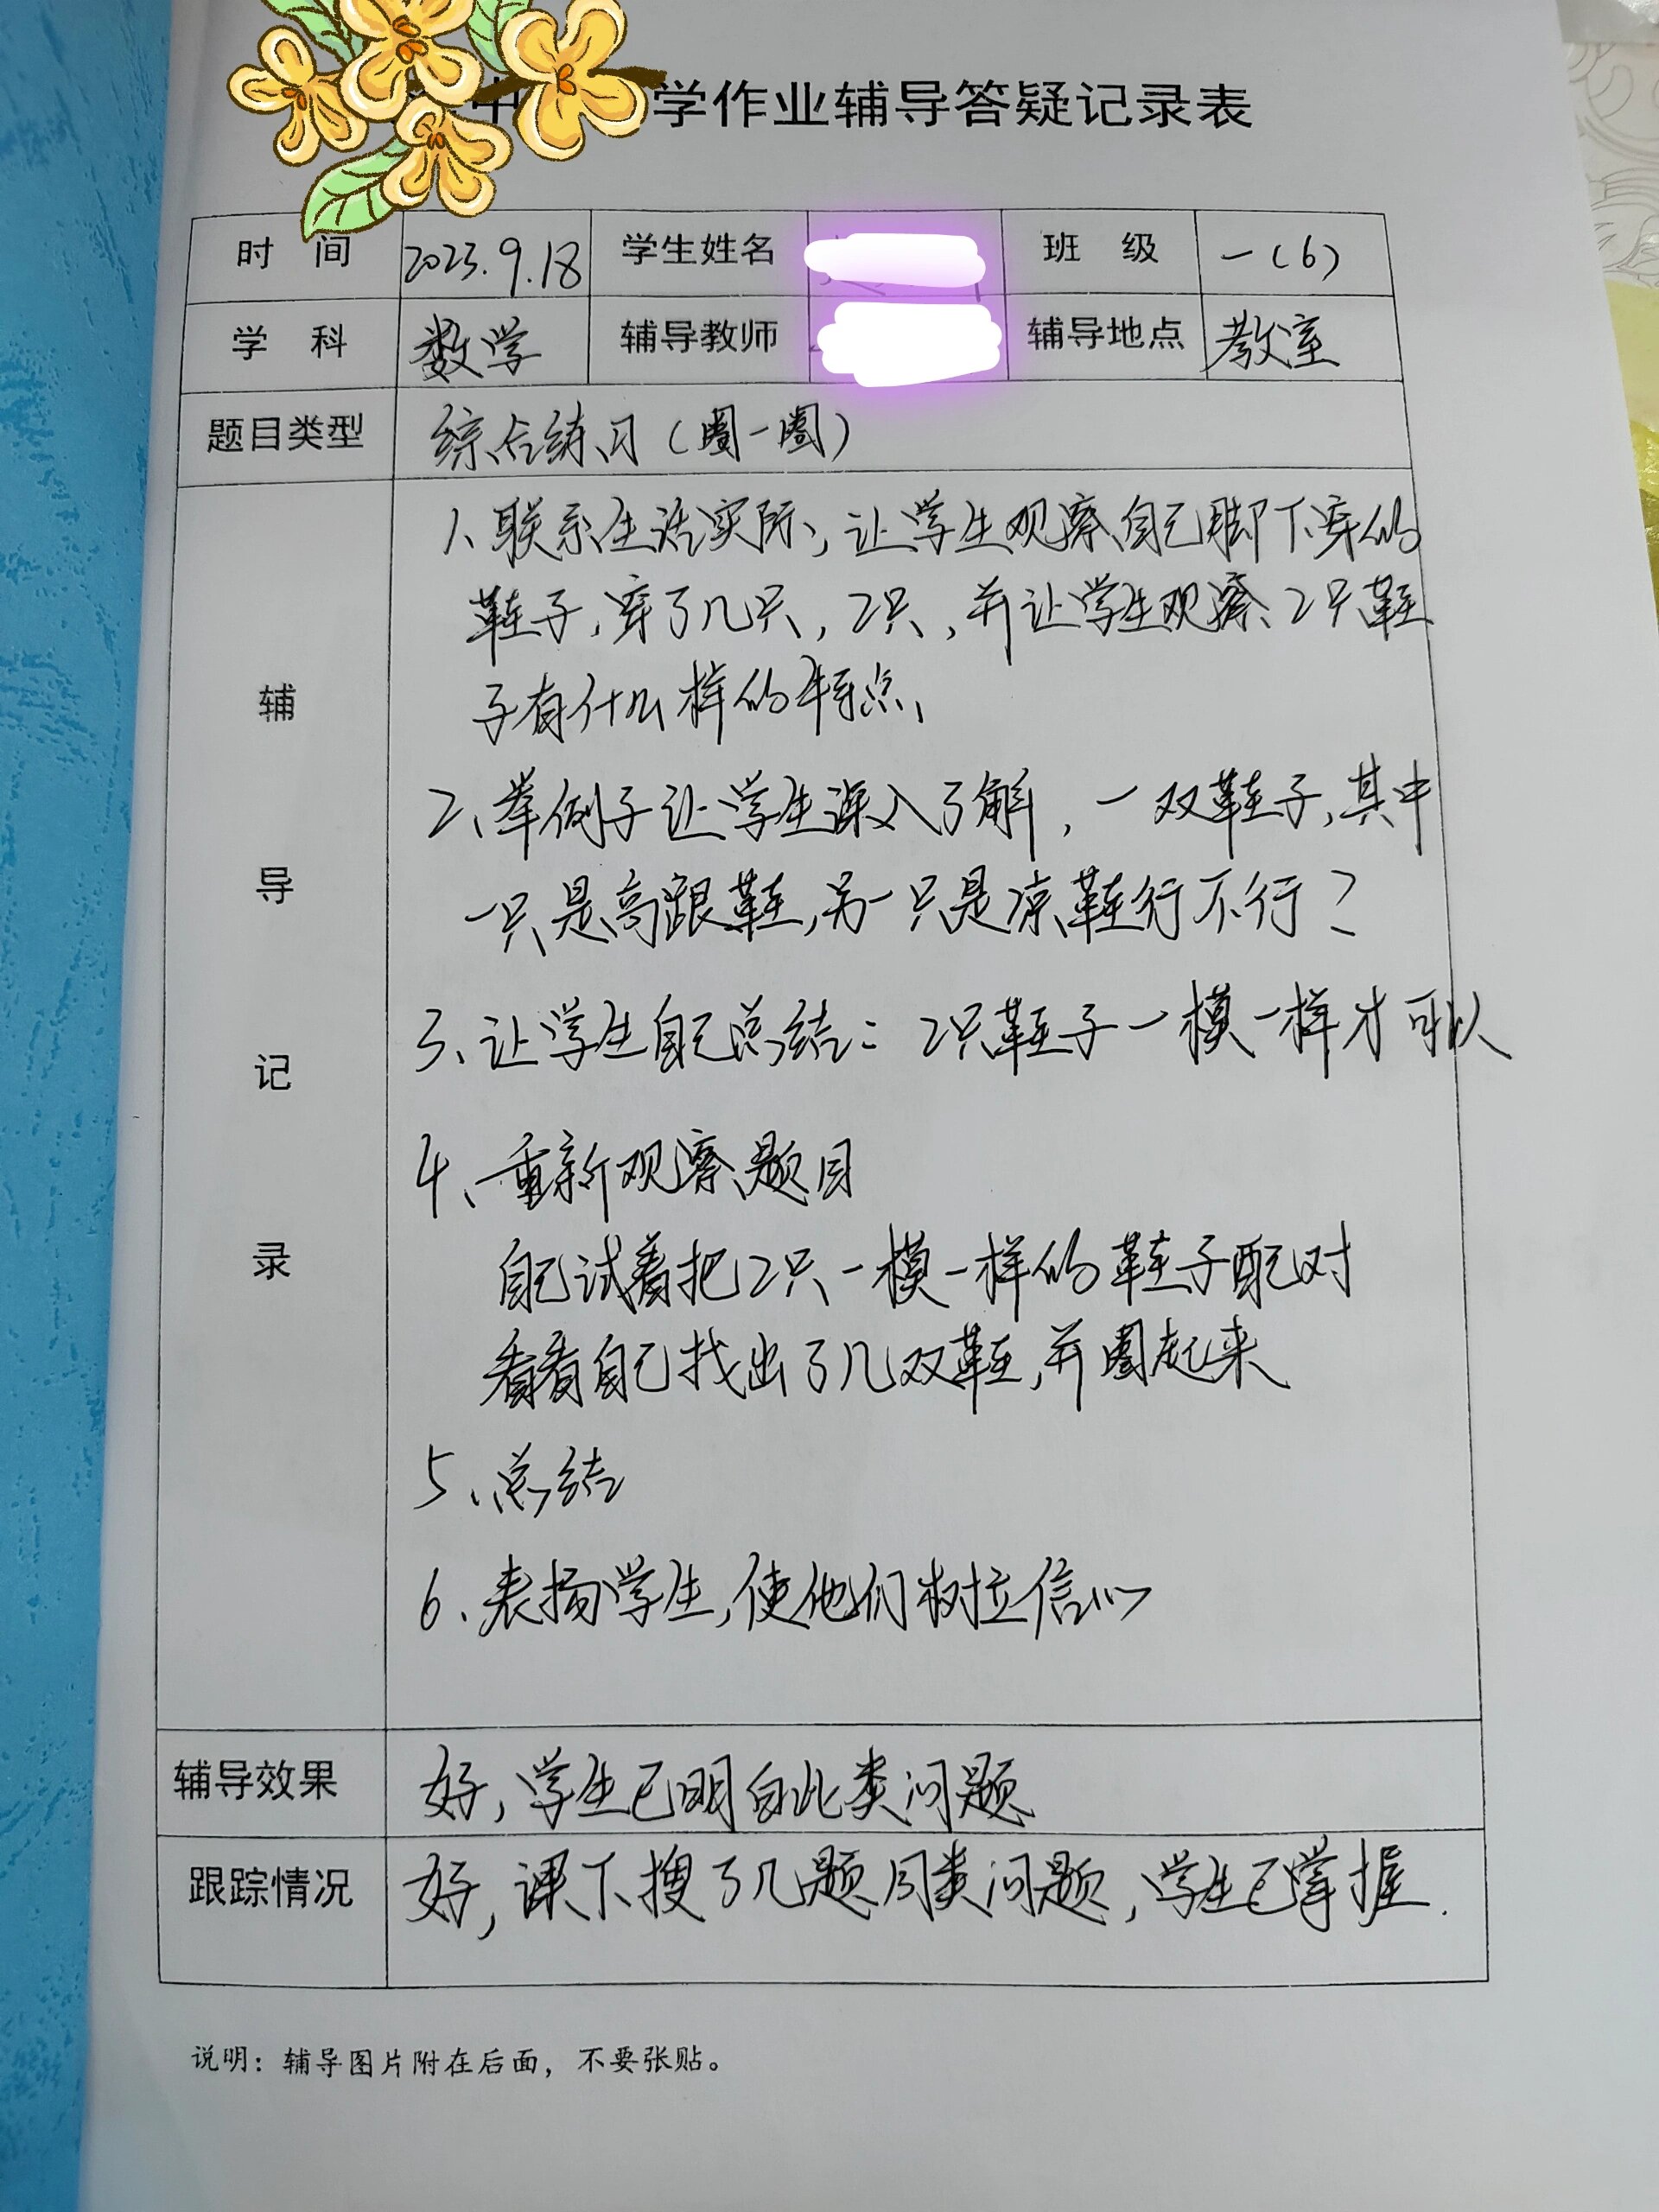 中 学作业辅导答疑记录表
时 间 2023.9.18 学生姓名 班 级 一(6)
学 科 数学 辅导教师 辅导地点 教室
题目类型 综合练习(圈一圈)
辅导记录
1、联系生活实际,让学生观察自己脚下穿的
鞋子,穿了几只,2只,并让学生观察2只鞋
子有什么样的特点、
2、举例子让学生深入了解,一双鞋子,其中
一只是高跟鞋,另一只是凉鞋行不行?
3、让学生自己总结:2只鞋子一模一样才可以
4、重新观察题目
自己试着把2只一模一样的鞋子配对
看看自己找出了几双鞋,并圈起来
5、总结
6、表扬学生,使他们树立信心
辅导效果 好,学生已明白此类问题
跟踪情况 好,课下搜了几题同类问题,学生已掌握.
说明:辅导图片附在后面,不要张贴。